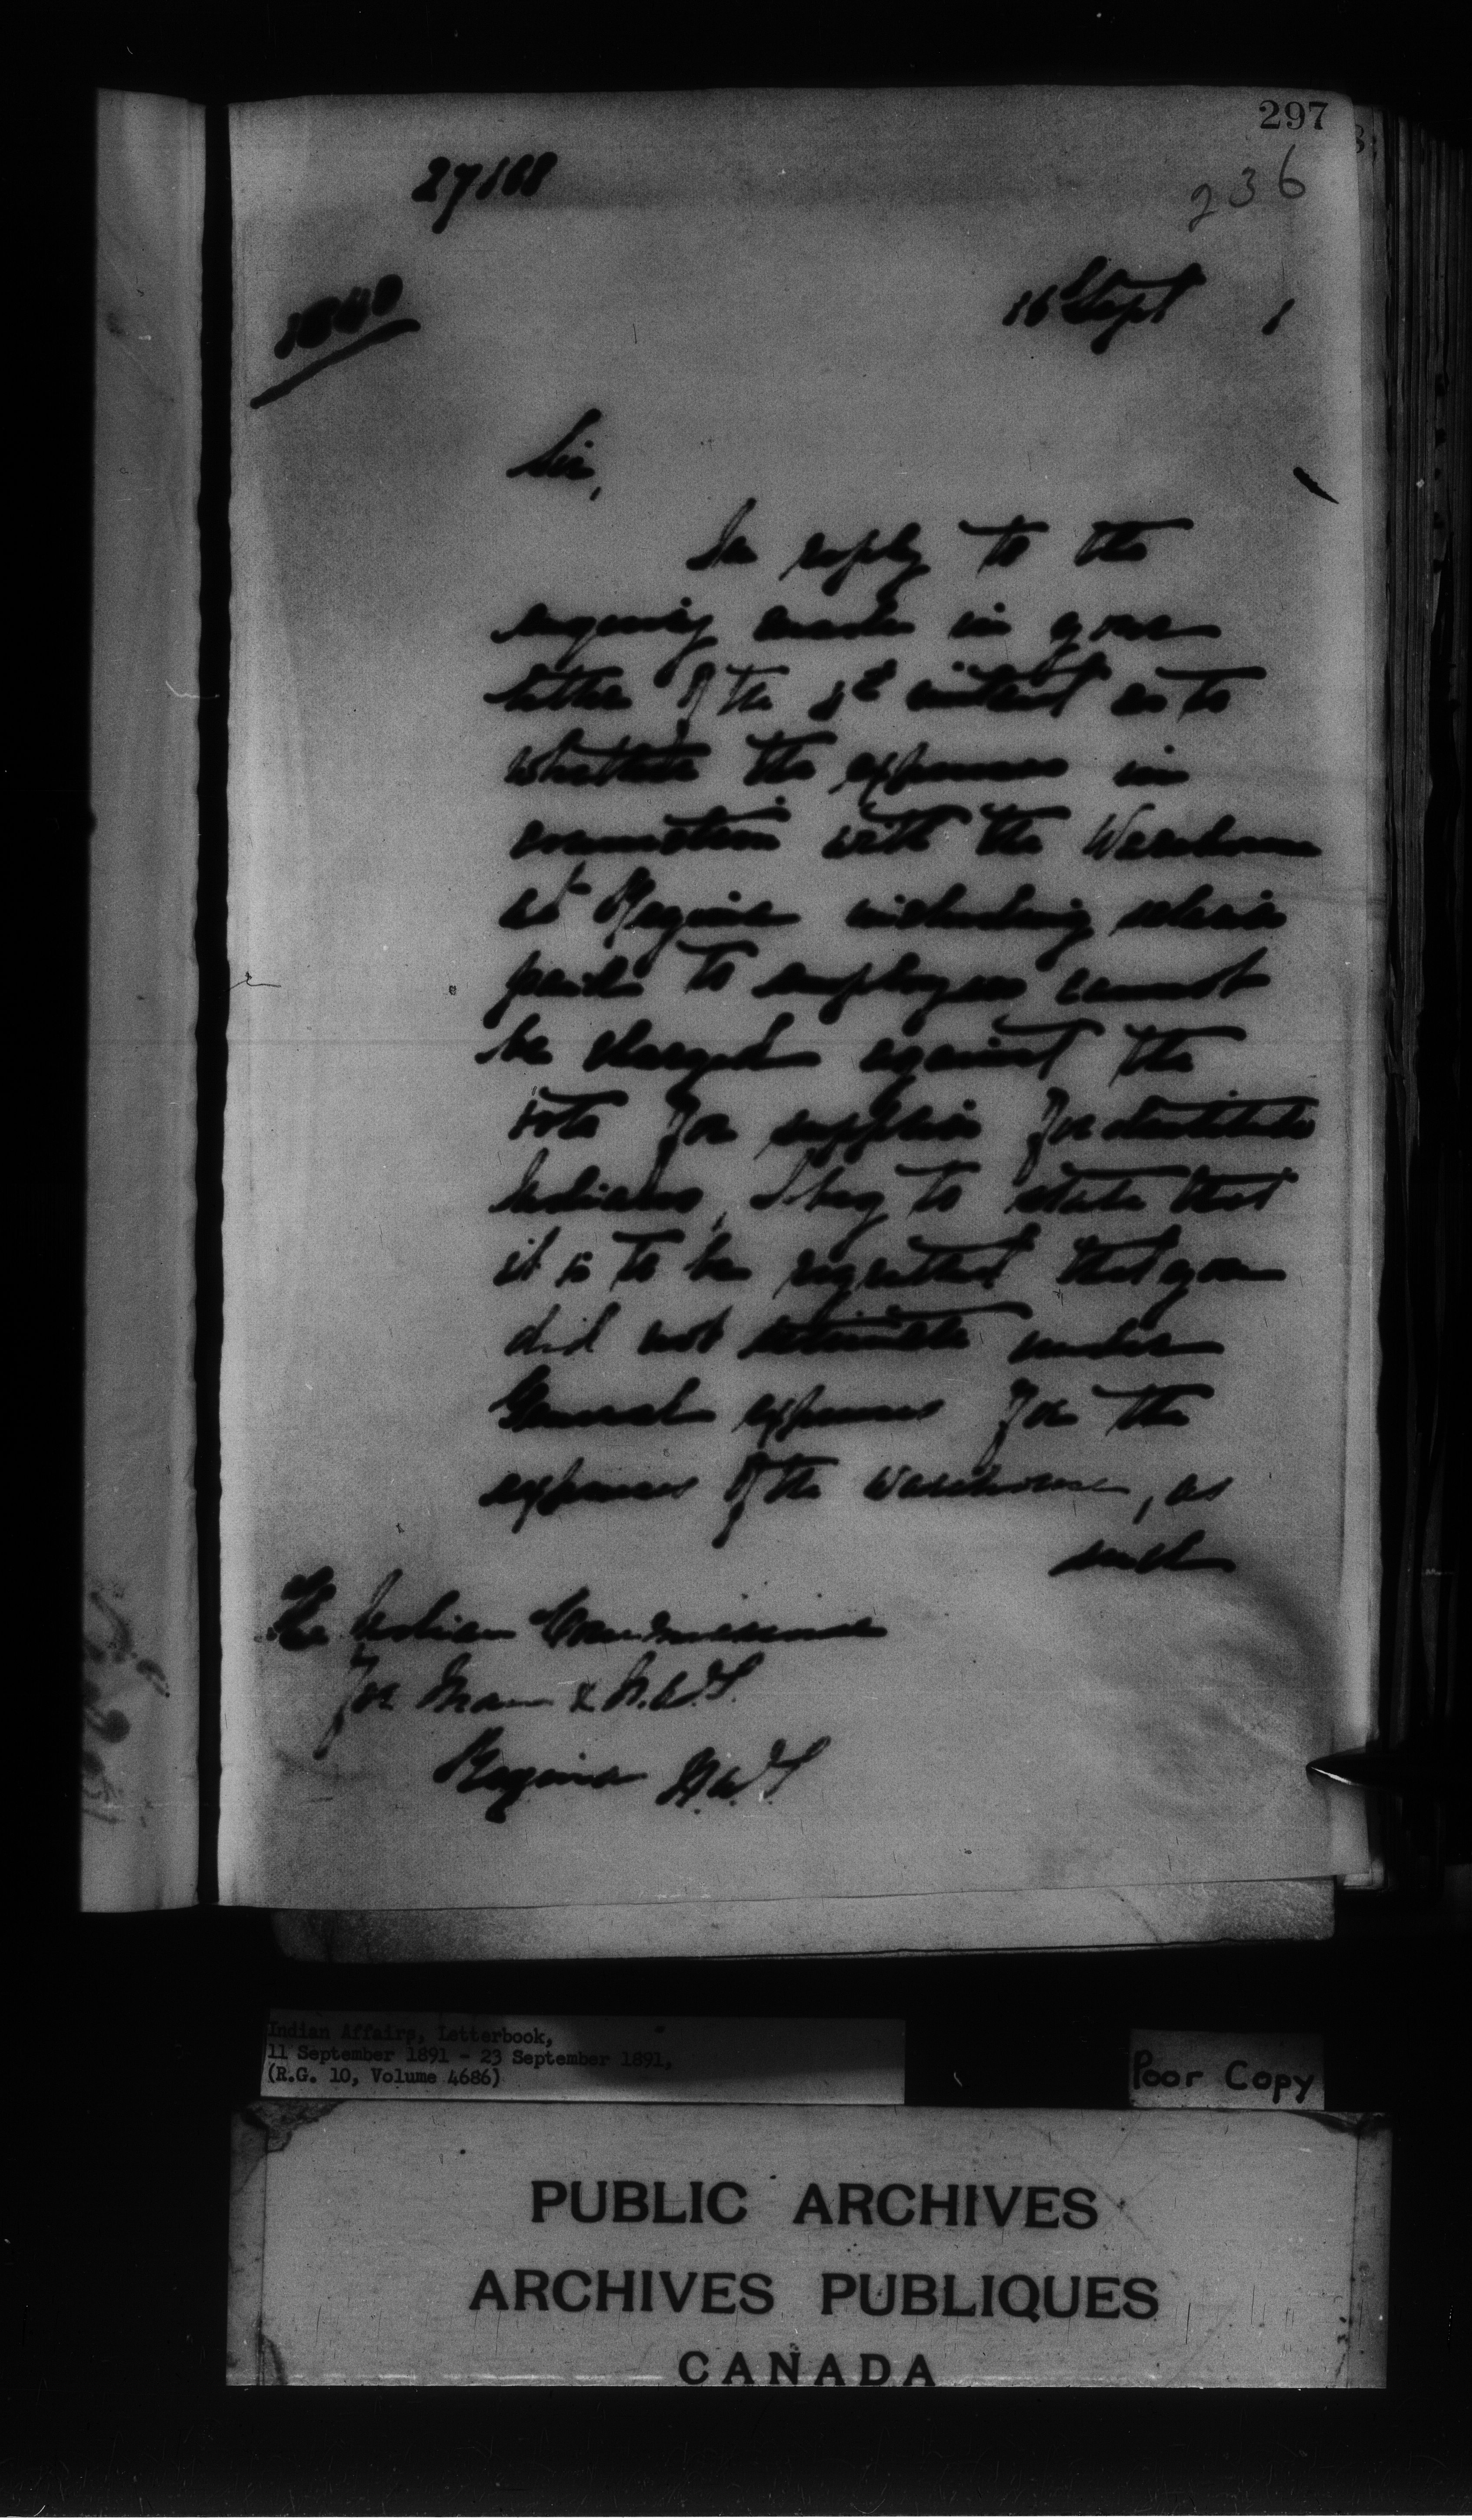 297
236
27188
16 Sept 1
Sir,
In reply to the
enquiry made in your
letter of the 1st instant as to
whether the expenses in
connection with the Warehouse
at Regina including salaries
paid to employees cannot
be charged against the
vote for supplies for destitute
Indians, I beg to state that
it is to be regretted that you
did not estimate under
General expenses for the
expenses of the Warehouse, as
such
The Indian Commissioner
for Man & N.W.T.
Regina N.W.T
Indian Affairs, Letterbook,
11 September 1891 - 23 September 1891,
(R.G. 10, Volume 4686)
Poor Copy
PUBLIC ARCHIVES
ARCHIVES PUBLIQUES
CANADA